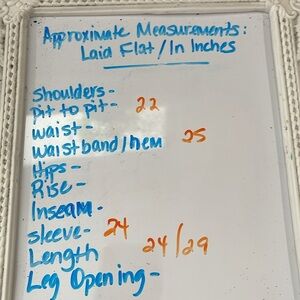 Approximate Measurements:
Laid Flat/In Inches
Shoulders-
Pit to pit- 22
Waist-
Waistband/hem 25
Hips-
Rise-
Inseam-
Sleeve- 24
Length 24/29
Leg Opening-